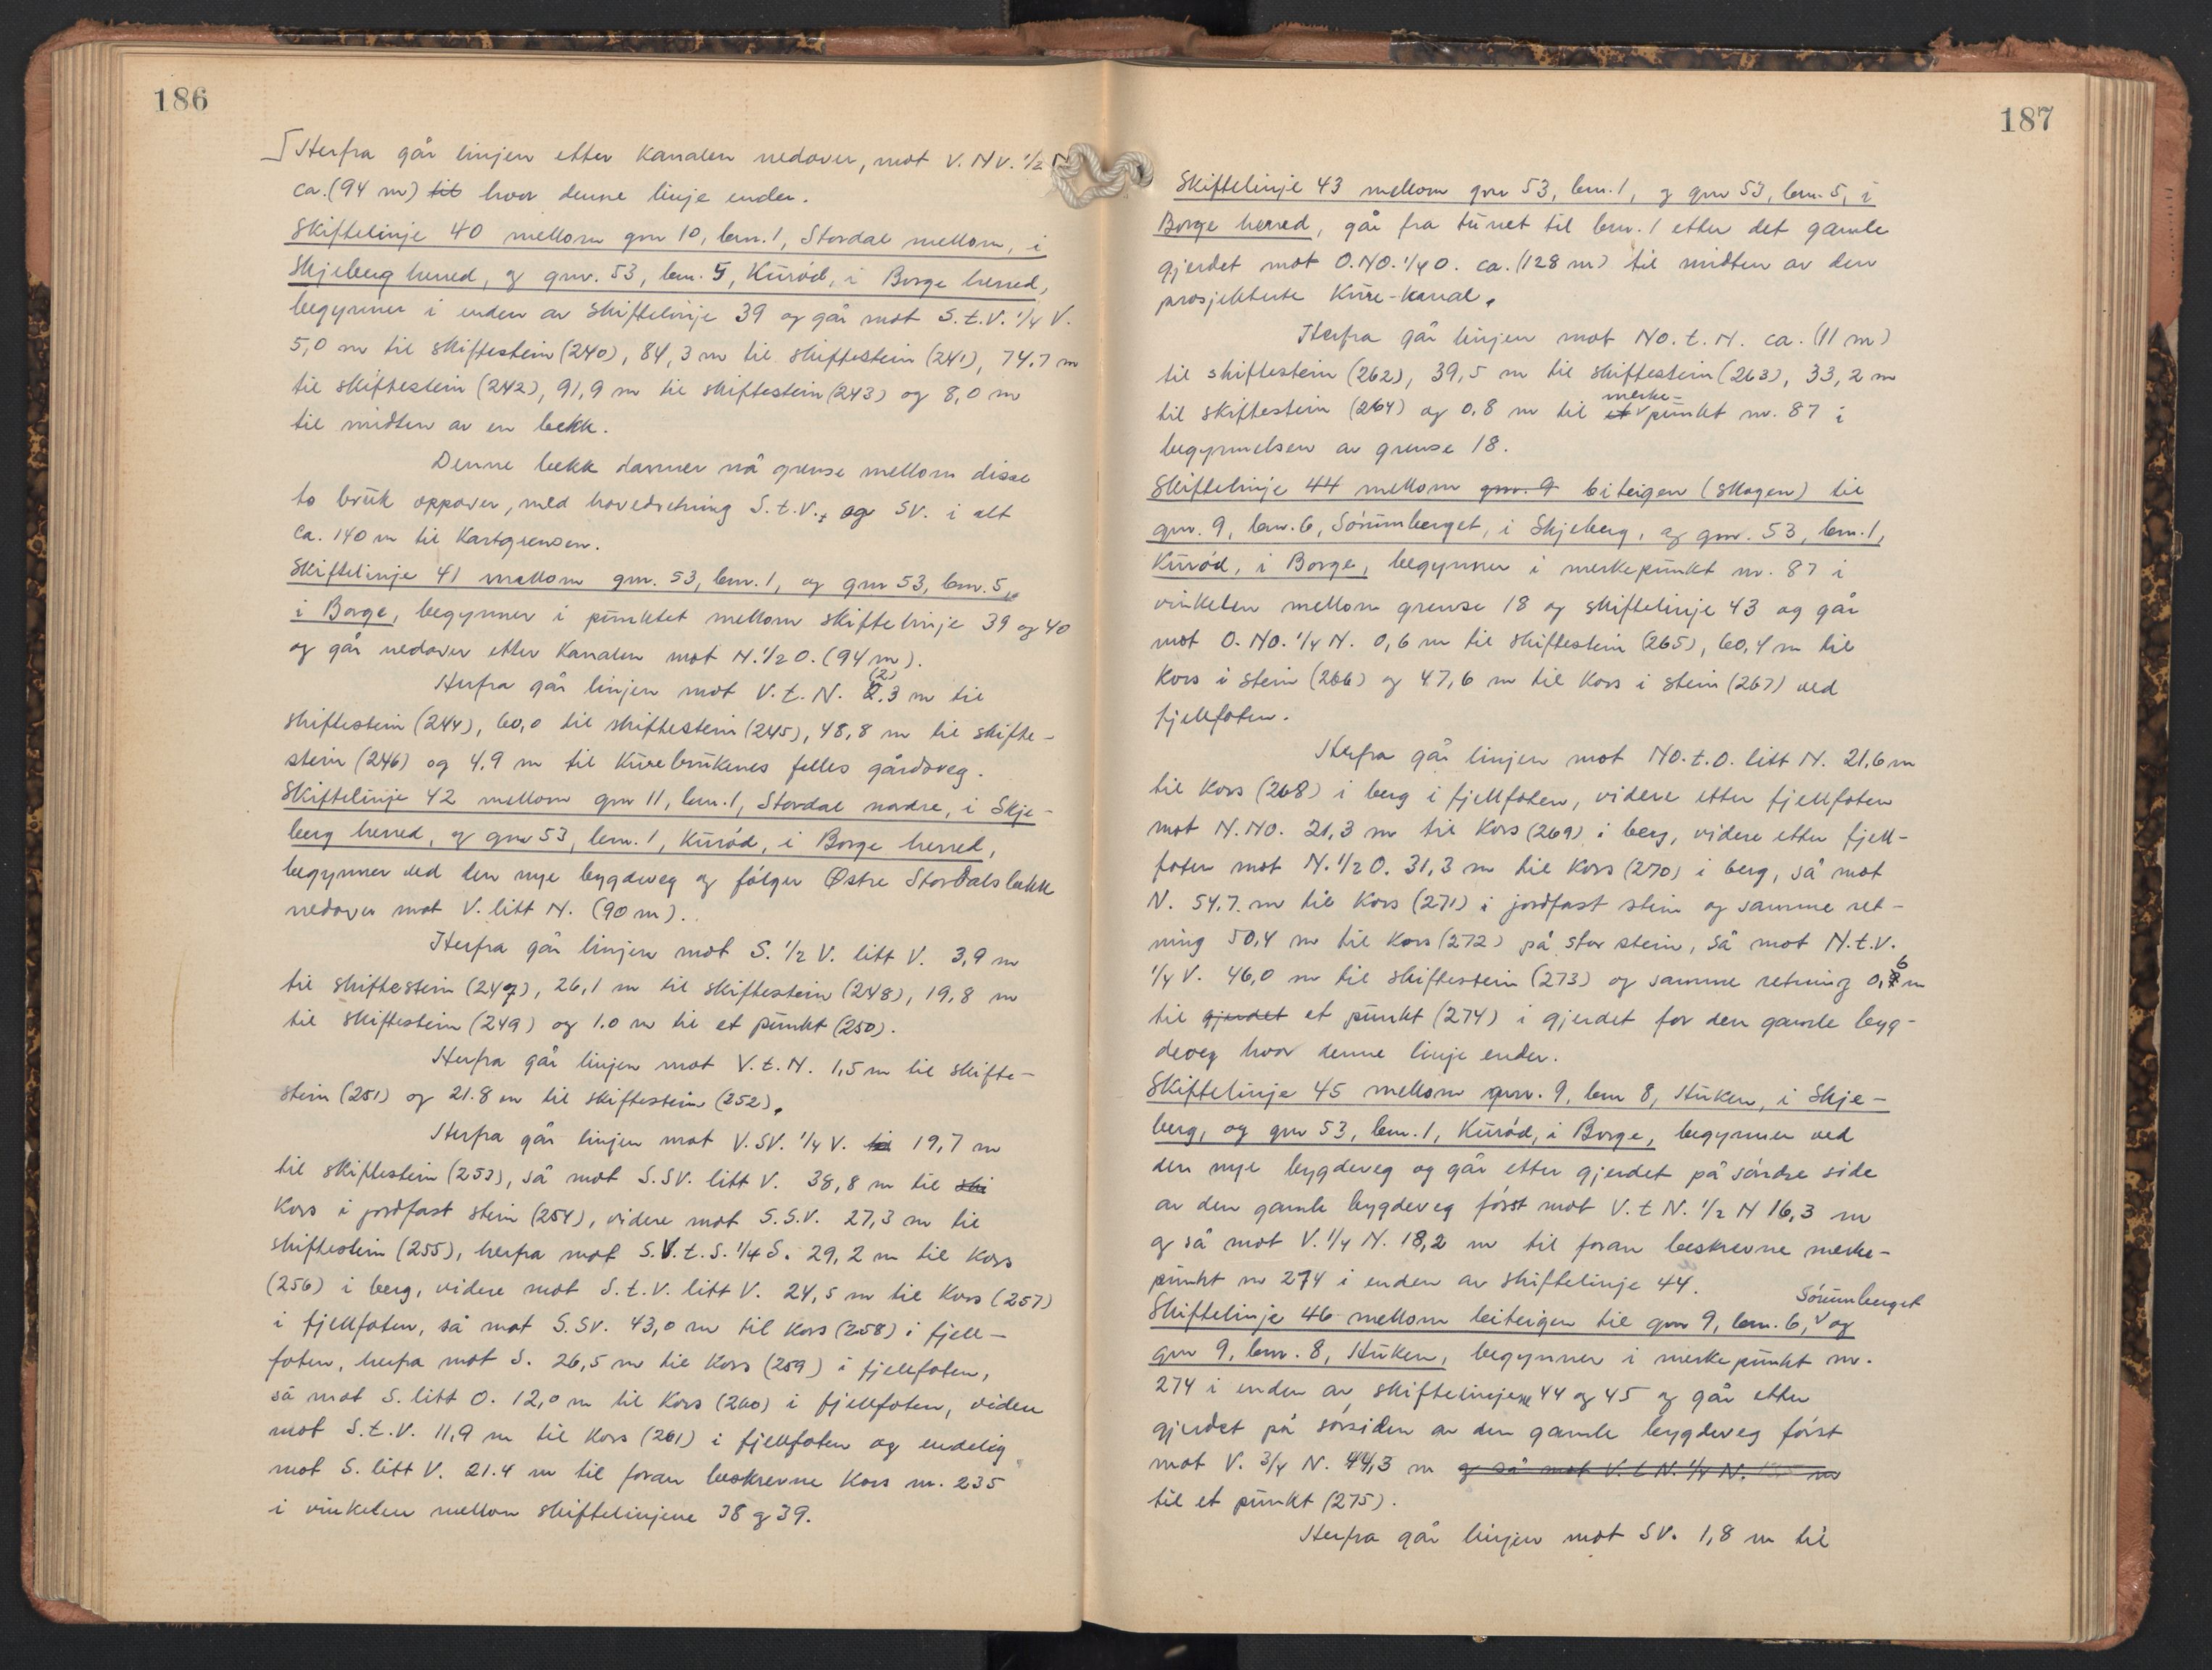 186
Herfra går linjen etter Kanalen nedover, mot V. NV. 1/2 N
ca. (94 m) til hvor denne linje ender.
Skiftelinje 40 mellom gnr 10, bnr. 1, Stordal mellom, i
Skjeberg herred, og gnr. 53, bnr. 5, Kurød, i Borge herred,
begynner i enden av skiftelinje 39 og går mot S.t.V. 1/4 V.
5,0 m til skiftestein (240), 84,3 m til skiftestein (241), 74.7 m
til skiftestein (242), 91,9 m til skiftestein (243) og 8,0 m
til midten av en bekk.
Denne bekk danner nå grense mellom disse
to bruk oppover, med hovedretning S.t.V. og SV. i alt
ca. 140 m til Kartgrensen.
Skiftelinje 41 mellom gnr. 53, bnr. 1, og gnr 53, bnr. 5,
i Borge, begynner i punktet mellom skiftelinje 39 og 40
og går nedover etter Kanalen mot N. 1/2 O. (94 m).
Herfra går linjen mot V.t.N. 2.3 m til
(2)
skiftestein (244), 60,0 til skiftestein (245), 48,8 m til skifte-
stein (246) og 4.9 m til Kurebrukenes felles gårdsveg.
Skiftelinje 42 mellom gnr 11, bnr. 1, Stordal nordre, i Skje-
berg herred, og gnr 53, bnr. 1, Kurød, i Borge herred,
begynner ved den nye bygdeveg og følger Østre Stordalsbekk
nedover mot V. litt N. (90 m).
Herfra går linjen mot S. 1/2 V. litt V. 3,9 m
til skiftestein (247), 26,1 m til skiftestein (248), 19,8 m
til skiftestein (249) og 1.0 m til et punkt (250).
Herfra går linjen mot V.t.N. 1,5 m til skifte-
stein (251) og 21.8 m til skiftestein (252).
Herfra går linjen mot V.SV. 1/4 V. til 19,7 m
til skiftestein (253), så mot S.SV. litt V. 38,8 m til ski
Kors i jordfast stein (254), videre mot S.S.V. 27,3 m til
skiftestein (255), herfra mot S.V.t.S. 1/4 S. 29,2 m til Kors
(256) i berg, videre mot S.t.V. litt V. 24,5 m til Kors (257)
i fjellfoten, så mot S.SV. 43,0 m til Kors (258) i fjell-
foten, herfra mot S. 26,5 m til Kors (259) i fjellfoten,
så mot S. litt O. 12,0 m til Kors (260) i fjellfoten, videre
mot S.t.V. 11,9 m til Kors (261) i fjellfoten og endelig
mot S. litt V. 21.4 m til foran beskrevne Kors nr. 235
i vinkelen mellom skiftelinjene 38 og 39.
187
Skiftelinje 43 mellom gnr 53, bnr. 1, og gnr 53, bnr. 5, i
Borge herred, går fra tunet til bnr. 1 etter det gamle
gjerdet mot O.NO. 1/4 O. ca. (128 m) til midten av den
prosjekterte Kure-kanal.
Herfra går linjen mot NO.t.N. ca. (11 m)
til skiftestein (262), 39,5 m til skiftestein (263), 33,2 m
merke-
til skiftestein (264) og 0,8 m til et punkt nr. 87 i
begynnelsen av grense 18.
Skiftelinje 44 mellom gnr. 9 biteigen (skogen) til
gnr. 9, bnr. 6, Sørumberget, i Skjeberg, og gnr. 53, bnr. 1,
Kurød, i Borge, begynner i merkepunkt nr. 87 i
vinkelen mellom grense 18 og skiftelinje 43 og går
mot O. NO. 1/4 N. 0,6 m til skiftestein (265), 60,4 m til
Kors i stein (266) og 47,6 m til Kors i stein (267) ved
fjellfoten.
Herfra går linjen mot NO.t.O. litt N. 21,6 m
til Kors (268) i berg i fjellfoten, videre etter fjellfoten
mot N.NO. 21,3 m til Kors (269) i berg, videre etter fjell-
foten mot N. 1/2 O. 31,3 m til Kors (270) i berg, så mot
N. 54,7. m til Kors (271) i jordfast stein og samme ret-
ning 50,4 m til Kors (272) på stor stein, så mot N.t.V.
1/4 V. 46,0 m til skiftestein (273) og samme retning 0,6 m
til gjerdet et punkt (274) i gjerdet for den gamle byg-
deveg hvor denne linje ender.
Skiftelinje 45 mellom gnr. 9, bnr 8, Huken, i Skje-
berg, og gnr 53, bnr. 1, Kurød, i Borge, begynner ved
den nye bygdeveg og går etter gjerdet på søndre side
av den gamle bygdeveg først mot V.t N. 1/2 N 16,3 m
og så mot V. 1/4 N. 18,2 m til foran beskrevne merke-
punkt nr 274 i enden av skiftelinje 44.
Sørumberget
Skiftelinje 46 mellom biteigen til gnr 9, bnr. 6, og
gnr 9, bnr. 8, Huken, begynner i merkepunkt nr.
274 i enden av skiftelinjene 44 og 45 og går etter
gjerdet på sørsiden av den gamle bygdeveg først
mot V. 3/4 N. 44,3 m og så mot V. t N. 1/4 N. m
til et punkt (275).
Herfra går linjen mot SV. 1,8 m til